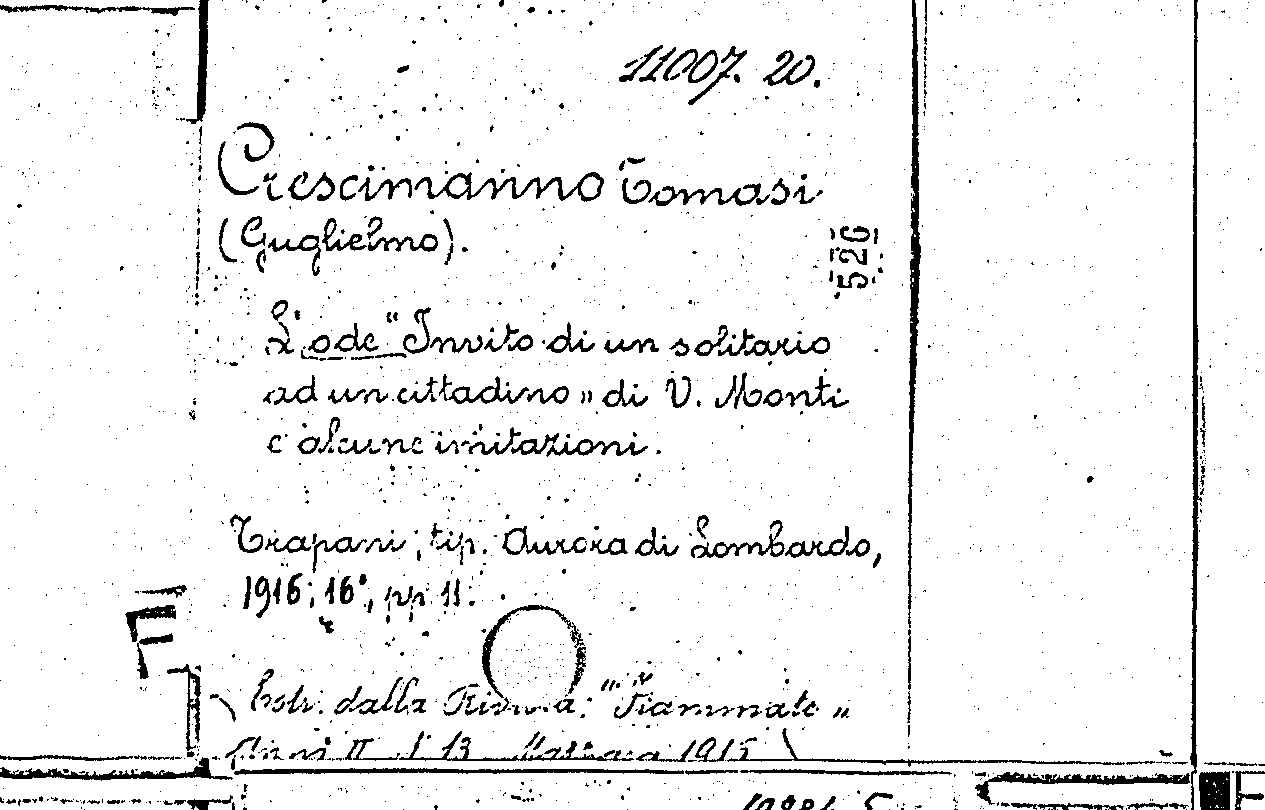 11007. 20.
Crescimanno Tomasi
(Guglielmo).
526
L'ode "Invito di un solitario
ad un cittadino" di V. Monti
e alcune imitazioni.
Trapani, tip. Aurora di Lombardo,
1916; 16°, pp 11.
Estr. dalla Rivista: "Fiammate"
Anni II 13 1915